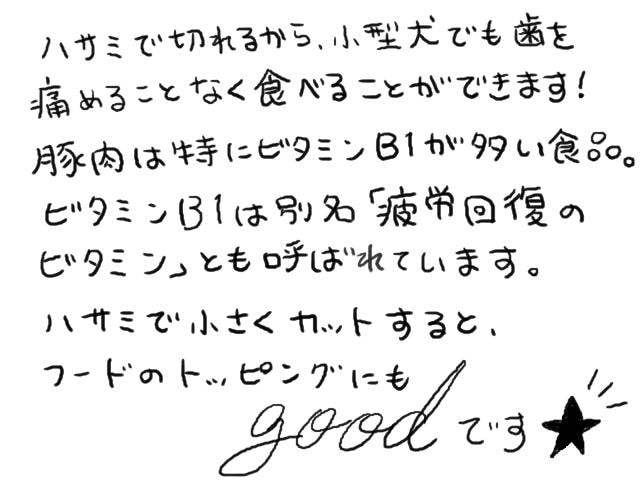 ハサミで切れるから、小型犬でも歯を
痛めることなく食べることができます!
豚肉は特にビタミンB1が多い食品。
ビタミンB1は別名「疲労回復の
ビタミン」とも呼ばれています。
ハサミで小さくカットすると、
フードのトッピングにも
goodです★